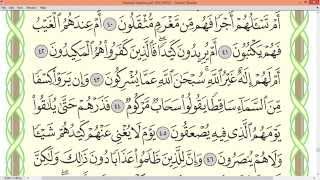 أَمْ تَسْـَٔلُهُمْ أَجْرًا فَهُم مِّن مَّغْرَمٍ مُّثْقَلُونَ ٤٠ أَمْ عِندَهُمُ ٱلْغَيْبُ
فَهُمْ يَكْتُبُونَ ٤١ أَمْ يُرِيدُونَ كَيْدًا فَٱلَّذِينَ كَفَرُوا۟ هُمُ ٱلْمَكِيدُونَ ٤٢
أَمْ لَهُمْ إِلَٰهٌ غَيْرُ ٱللَّهِ سُبْحَٰنَ ٱللَّهِ عَمَّا يُشْرِكُونَ ٤٣ وَإِن يَرَوْا۟ كِسْفًا
مِّنَ ٱلسَّمَآءِ سَاقِطًا يَقُولُوا۟ سَحَابٌ مَّرْكُومٌ ٤٤ فَذَرْهُمْ حَتَّىٰ يُلَٰقُوا۟
يَوْمَهُمُ ٱلَّذِى فِيهِ يُصْعَقُونَ ٤٥ يَوْمَ لَا يُغْنِى عَنْهُمْ كَيْدُهُمْ شَيْـًٔا
وَلَا هُمْ يُنصَرُونَ ٤٦ وَإِنَّ لِلَّذِينَ ظَلَمُوا۟ عَذَابًا دُونَ ذَٰلِكَ وَلَٰكِنَّ